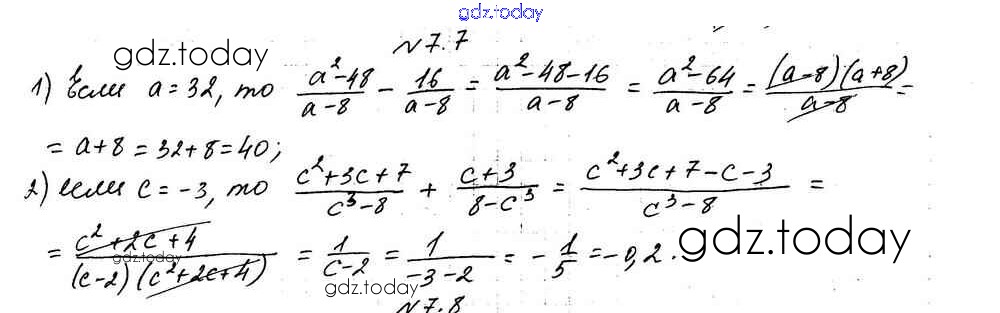 gdz.today
N 7.7
gdz.today
1) Если a = 32, то (a²-48)/(a-8) - 16/(a-8) = (a²-48-16)/(a-8) = (a²-64)/(a-8) = (a-8)(a+8)/(a-8) =
= a+8 = 32+8 = 40;
2) если c = -3, то (c²+3c+7)/(c³-8) + (c+3)/(8-c³) = (c²+3c+7-c-3)/(c³-8) =
= (c²+2c+4)/((c-2)(c²+2c+4)) = 1/(c-2) = 1/(-3-2) = -1/5 = -0,2.
gdz.today
gdz.today
gdz.today
N 7.8